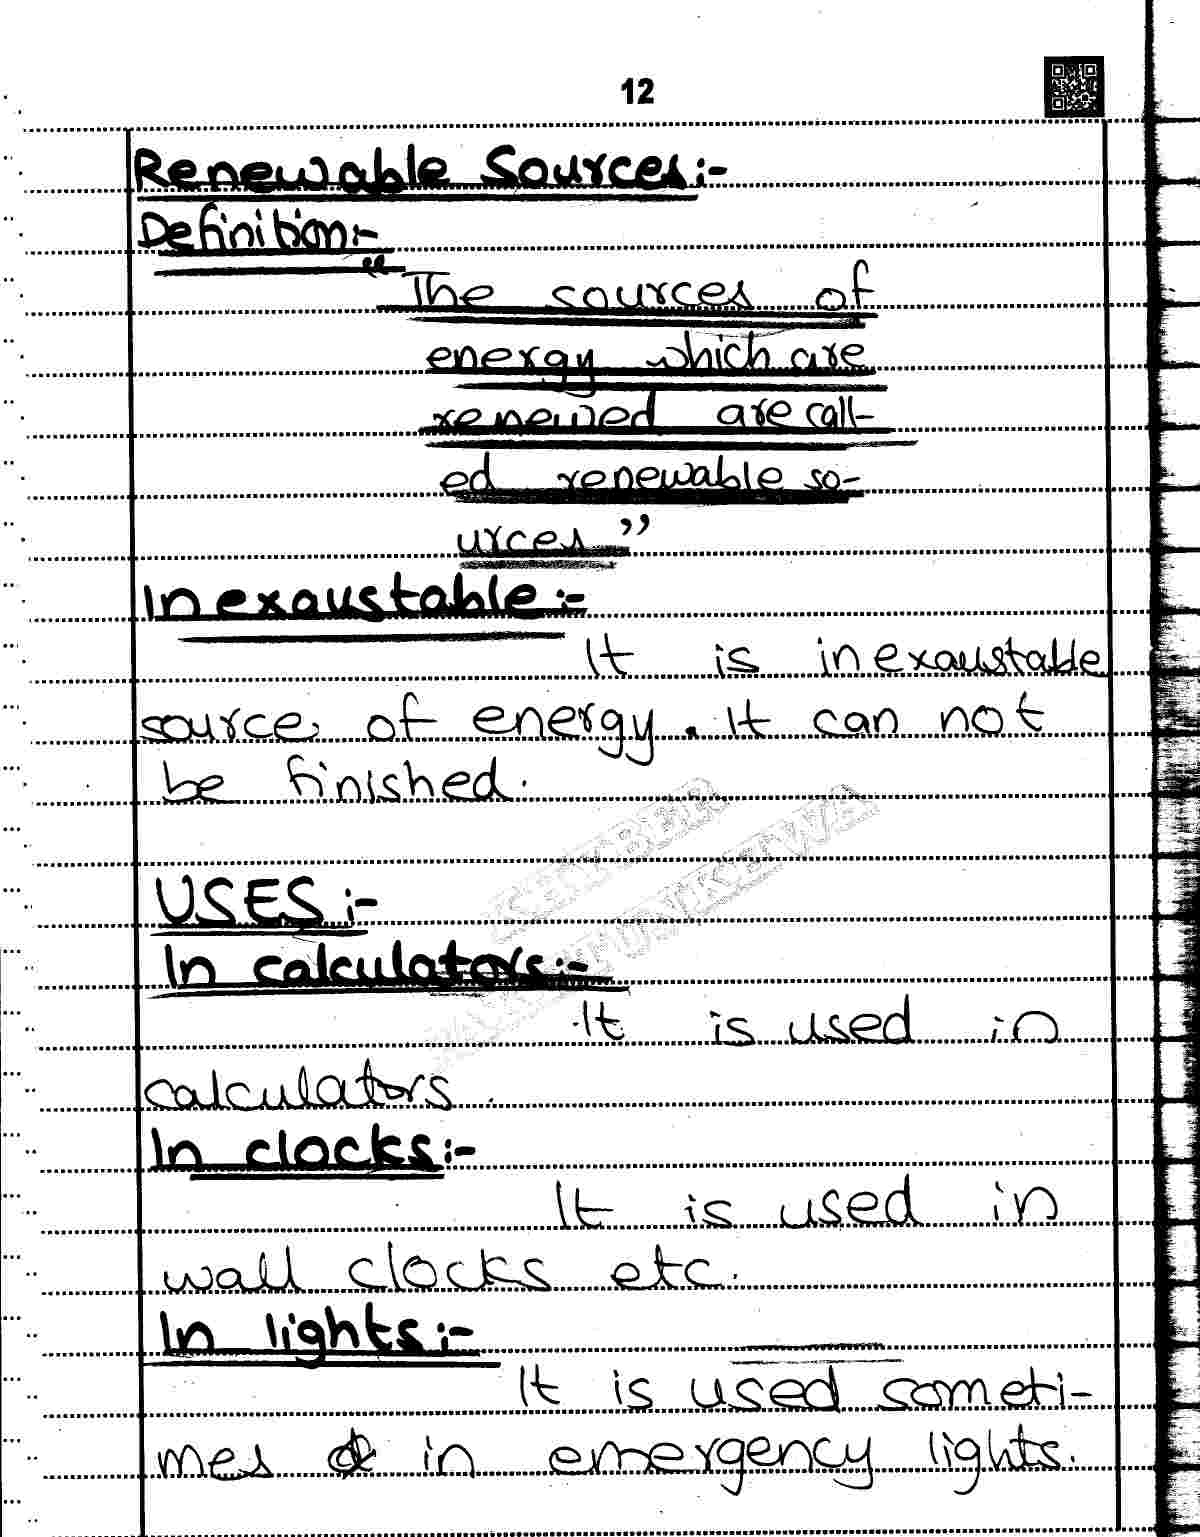 12
Renewable Sources:-
Definition:-
"The sources of
energy which are
renewed are call-
ed renewable so-
urces"
Inexaustable:-
It is inexaustable
source of energy. It can not
be finished.
KHYBER
USES:-
In calculators:-
It is used in
calculators.
In clocks:-
It is used in
wall clocks etc.
In lights:-
It is used someti-
mes in emergency lights.